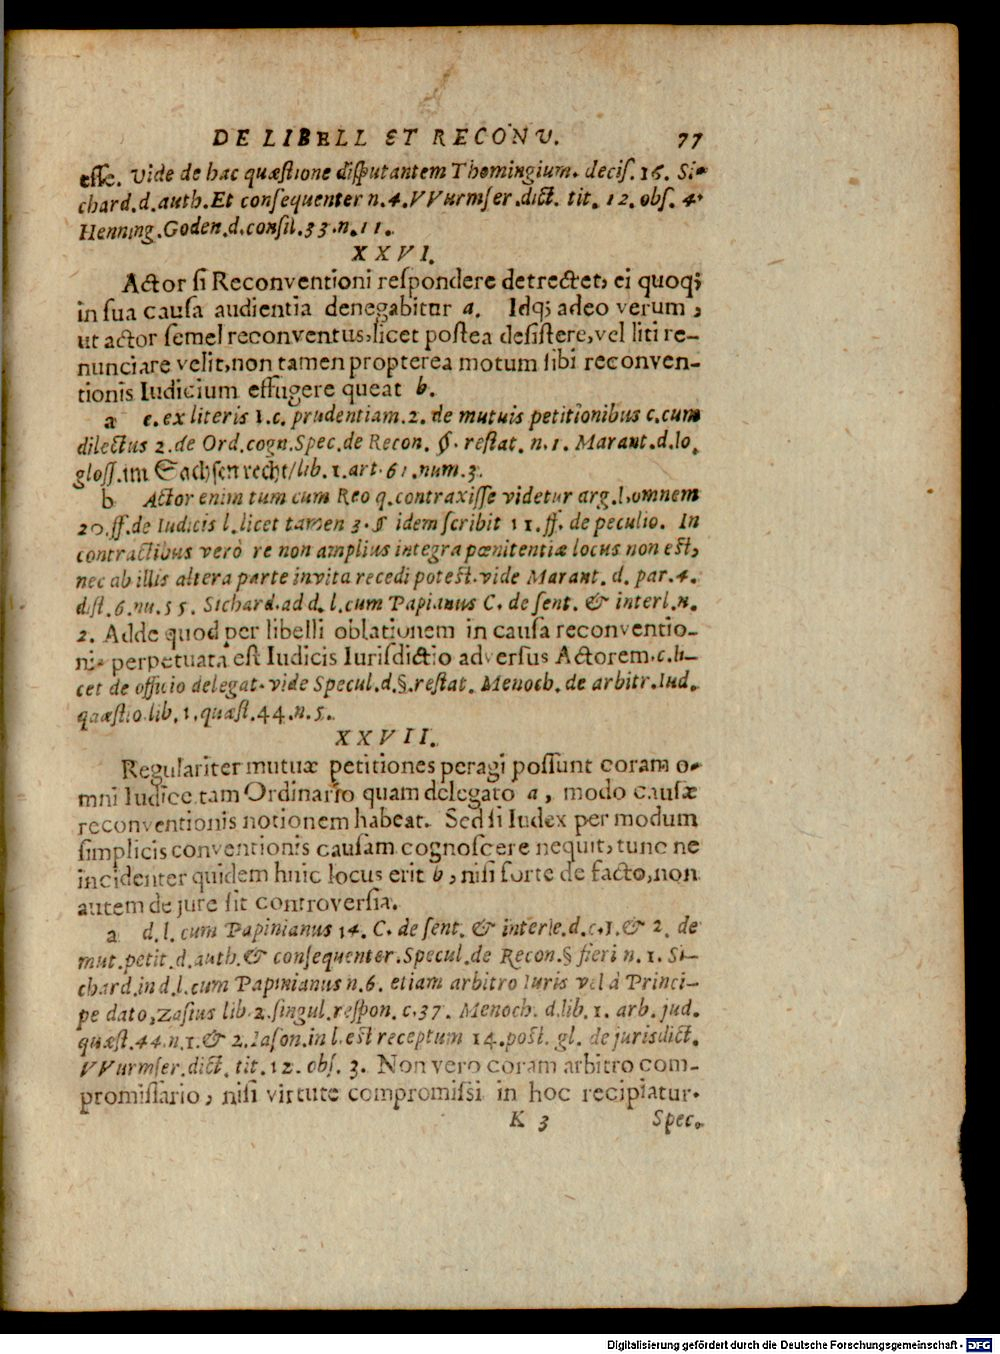 DE LIBELL ET RECONV. 77
esse. Vide de hac quæstione disputantem Thomingium. decis. 16. Si-
chard. d. auth. Et consequenter n. 4. VVurmser. dict. tit. 12. obs. 4.
Henning. Goden. d. consil. 33. n. 11.
XXVI.
Actor si Reconventioni respondere detrectet, ei quoq;
in sua causa audientia denegabitur a. Idq; adeo verum,
ut actor semel reconventus, licet postea desistere, vel liti re-
nunciare velit, non tamen propterea motum sibi reconven-
tionis Iudicium effugere queat b.
a c. ex literis 1. c. prudentiam. 2. de mutuis petitionibus c. cum
dilectus 2. de Ord. cogn. Spec. de Recon. §. restat. n. 1. Marant. d. lo.
gloss. im Sachsenrecht/ lib. 1. art. 61. num. 3.
b Actor enim tum cum Reo q. contraxisse videtur arg. l. omnem
20. ff. de Iudicis l. licet tamen 3. § idem scribit 11. ff. de peculio. In
contractibus verò re non amplius integra pœnitentiæ locus non est,
nec ab illis altera parte invita recedi potest. vide Marant. d. par. 4.
dist. 6. nu. 55. Sichard. ad d. l. cum Papianus C. de sent. & interl. n.
2. Adde quod per libelli oblationem in causa reconventio-
nis perpetuata est Iudicis Iurisdictio adversus Actorem. c. li-
cet de officio delegat. vide Specul. d. §. restat. Menoch. de arbitr. Iud.
quæstio. lib. 1. quæst. 44. n. 5.
XXVII.
Regulariter mutuæ petitiones peragi possunt coram o-
mni Iudice tam Ordinario quam delegato a, modo causæ
reconventionis notionem habeat. Sed si Iudex per modum
simplicis conventionis causam cognoscere nequit, tunc ne
incidenter quidem huic locus erit b, nisi forte de facto, non
autem de jure sit controversia.
a d. l. cum Papinianus 14. C. de sent. & interle. d. c. 1. & 2. de
mut. petit. d. auth. & consequenter. Specul. de Recon. § fieri n. 1. Si-
chard. in d. l. cum Papinianus n. 6. etiam arbitro Iuris vel à Princi-
pe dato, Zasius lib. 2. singul. respon. c. 37. Menoch. d. lib. 1. arb. jud.
quæst. 44. n. 1. & 2. Iason. in l. est receptum 14. post. gl. de jurisdict.
VVurmser. dict. tit. 12. obs. 3. Non vero coram arbitro com-
promissario, nisi virtute compromissi in hoc recipiatur.
K 3 Spec.
Digitalisierung gefördert durch die Deutsche Forschungsgemeinschaft - DFG